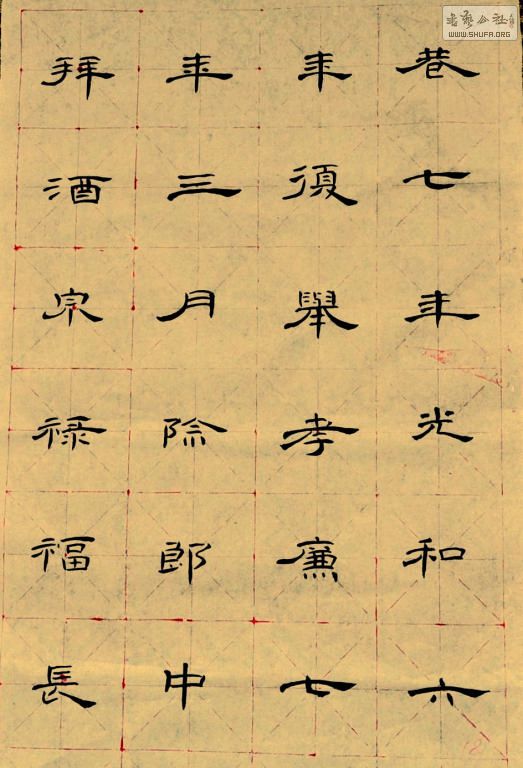 巷七年光和六
年復舉孝廉七
年三月除郎中
拜酒泉禄福長
书艺公社
WWW.SHUFA.ORG